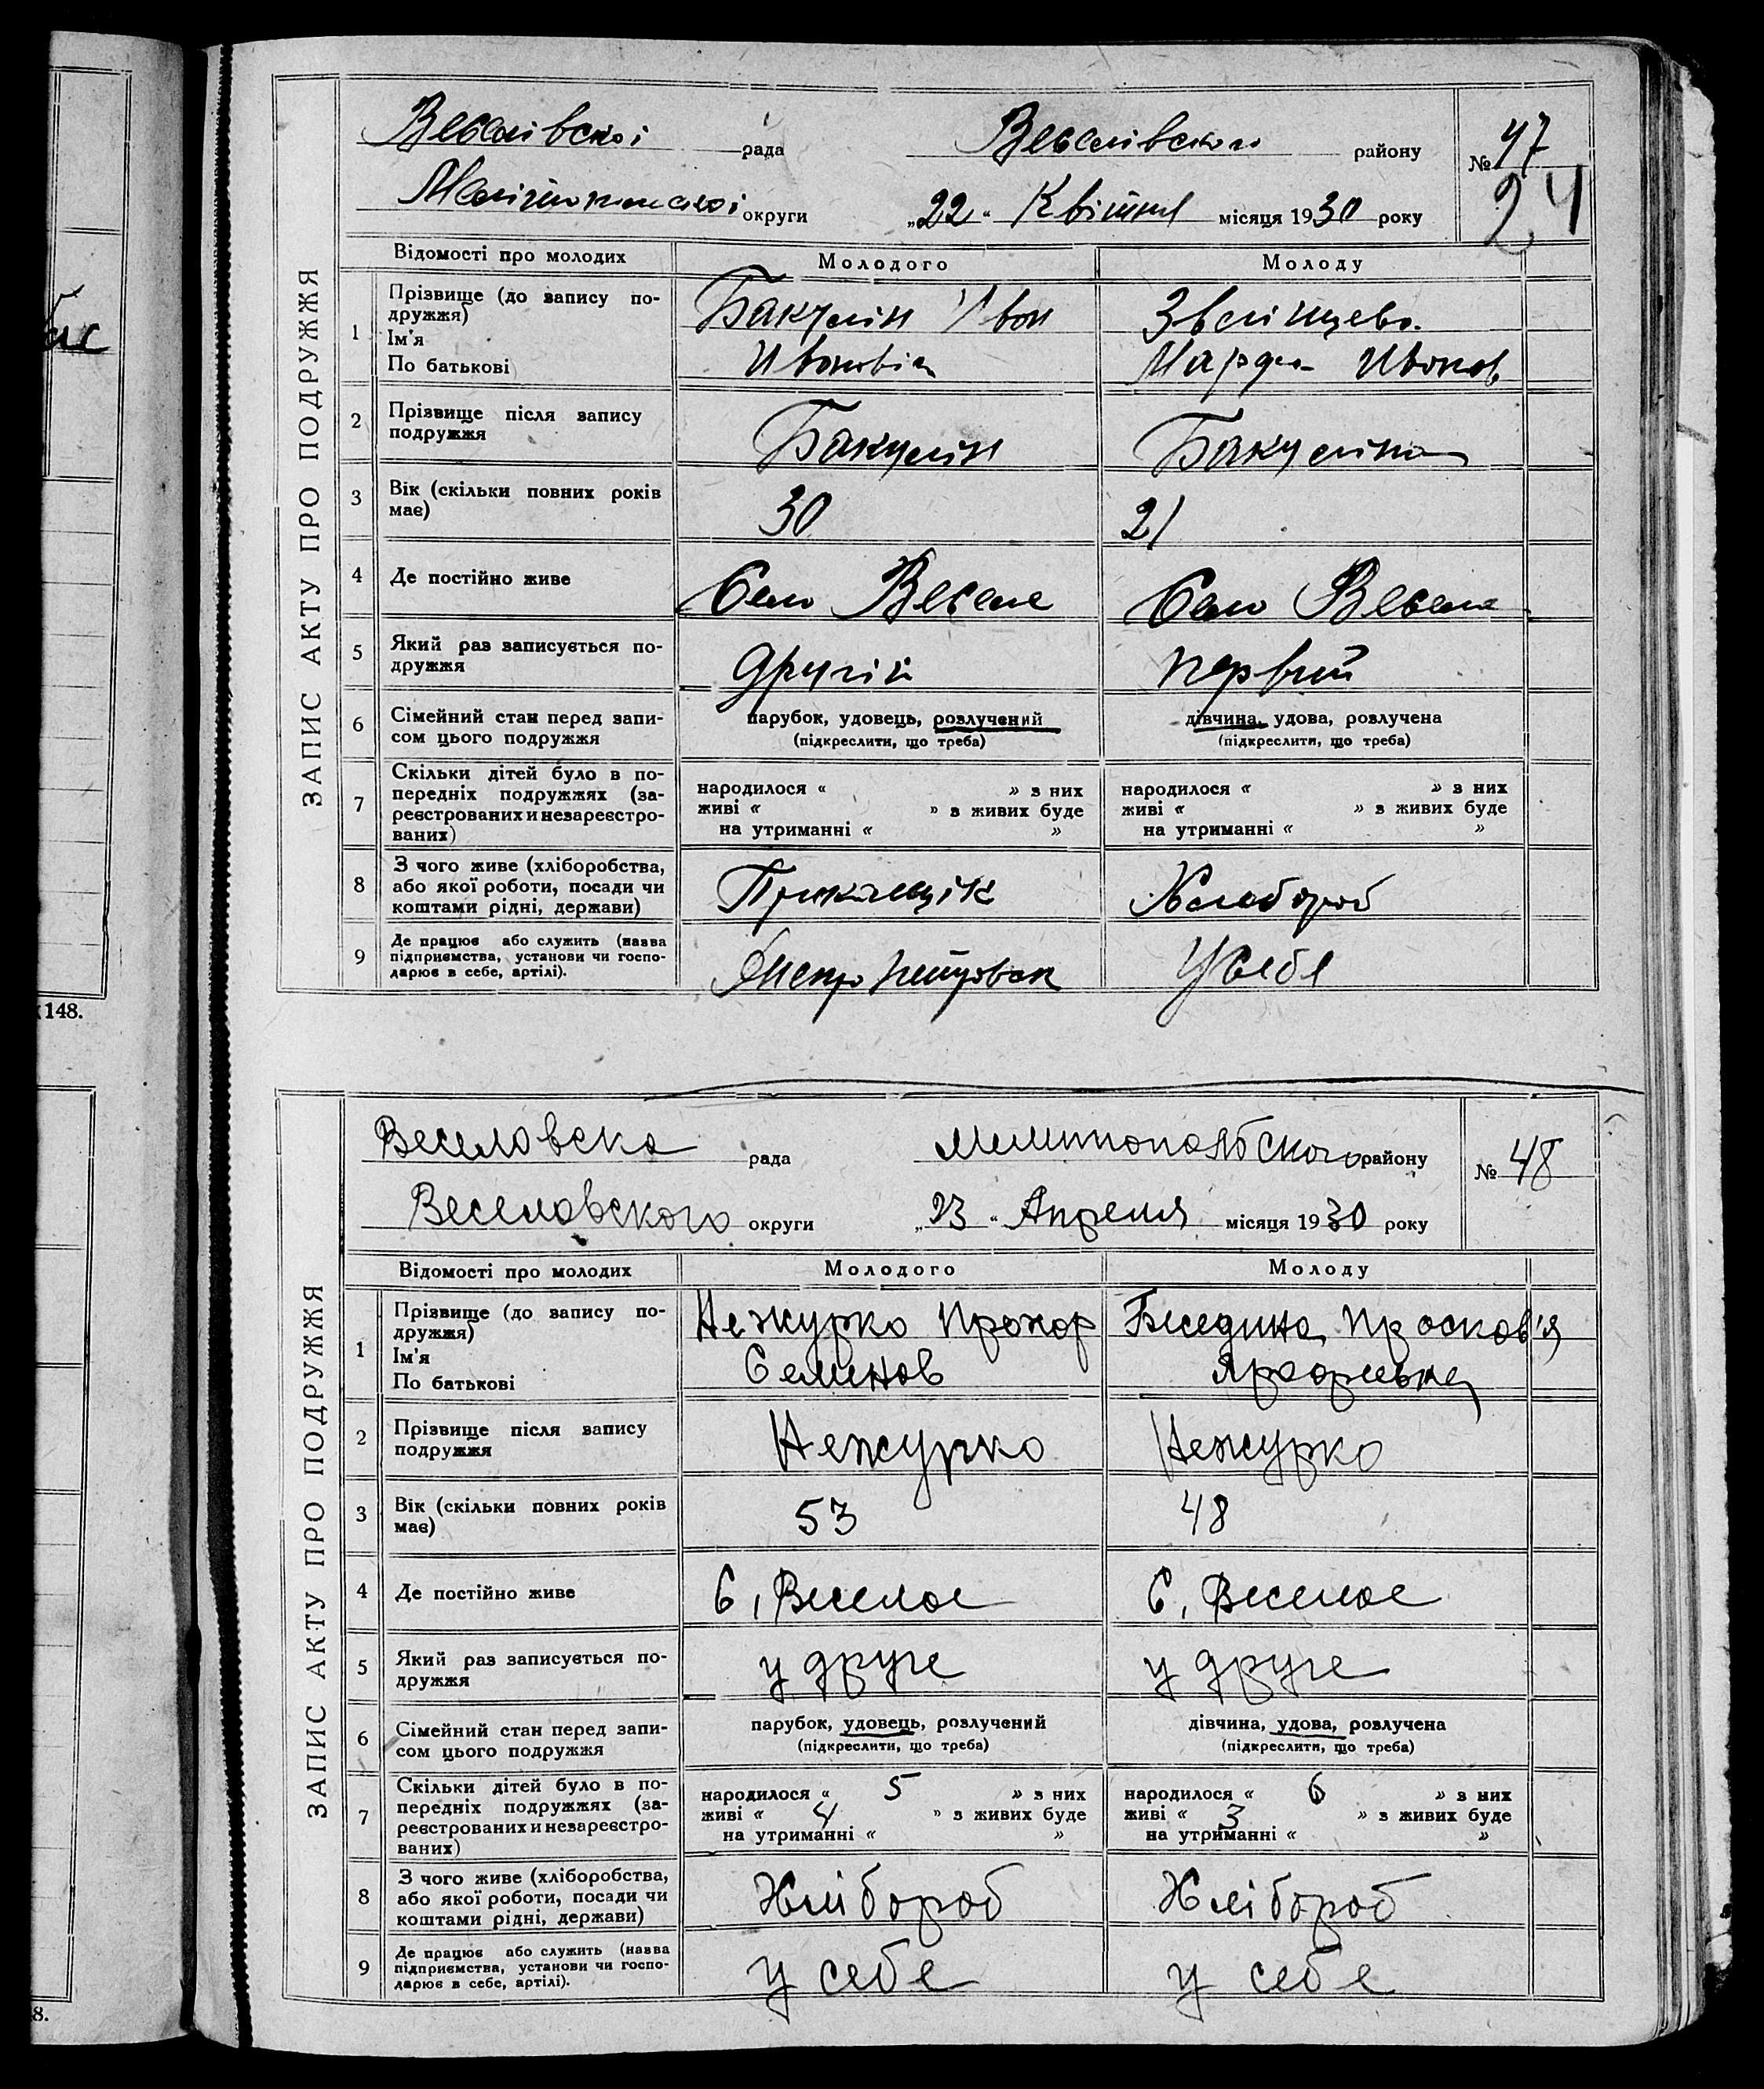 бис
148.
8.
ЗАПИС АКТУ ПРО ПОДРУЖЖЯ
Веселівскої рада Веселівского району № 47
Мелітопольскої округи „22“ Квітня місяця 1930 року 24
Відомості про молодих Молодого Молоду
1 Прізвище (до запису по-
дружжя)
Ім'я
По батькові
Бакулін Иван
Иванович
Звлінцева
Марфа Иванов
2 Прізвище після запису
подружжя
Бакулін Бакуліна
3 Вік (скільки повних років
має)
30 21
4 Де постійно живе Село Веселе Село Веселе
5 Який раз записується по-
дружжя
другій первий
6 Сімейний стан перед запи-
сом цього подружжя
парубок, удовець, розлучений
(підкреслити, що треба)
дівчина, удова, розлучена
(підкреслити, що треба)
7 Скільки дітей було в по-
передніх подружжях (за-
реєстрованих и незареєстро-
ваних)
народилося « » з них
живі « » з живих буде
на утриманні « »
народилося « » з них
живі « » з живих буде
на утриманні « »
8 З чого живе (хліборобства,
або якої роботи, посади чи
коштами рідні, держави)
Приказщік Хлебороб
9 Де працює або служить (назва
підприємства, установи чи госпо-
дарює в себе, артілі).
Днепропетровск У себе
ЗАПИС АКТУ ПРО ПОДРУЖЖЯ
Веселовска рада Мелитопольского району № 48
Веселовского округи „23“ Апреля місяця 1930 року
Відомості про молодих Молодого Молоду
1 Прізвище (до запису по-
дружжя)
Ім'я
По батькові
Нежурко Прохор
Семенов
Беседина Просков'я
2 Прізвище після запису
подружжя
Нежурко Нежурко
3 Вік (скільки повних років
має)
53 48
4 Де постійно живе С, Веселое С, Веселое
5 Який раз записується по-
дружжя
у друге у друге
6 Сімейний стан перед запи-
сом цього подружжя
парубок, удовець, розлучений
(підкреслити, що треба)
дівчина, удова, розлучена
(підкреслити, що треба)
7 Скільки дітей було в по-
передніх подружжях (за-
реєстрованих и незареєстро-
ваних)
народилося « 5 » з них
живі « 4 » з живих буде
на утриманні « »
народилося « 6 » з них
живі « 3 » з живих буде
на утриманні « »
8 З чого живе (хліборобства,
або якої роботи, посади чи
коштами рідні, держави)
Хлібороб Хлібороб
9 Де працює або служить (назва
підприємства, установи чи госпо-
дарює в себе, артілі).
у себе у себе